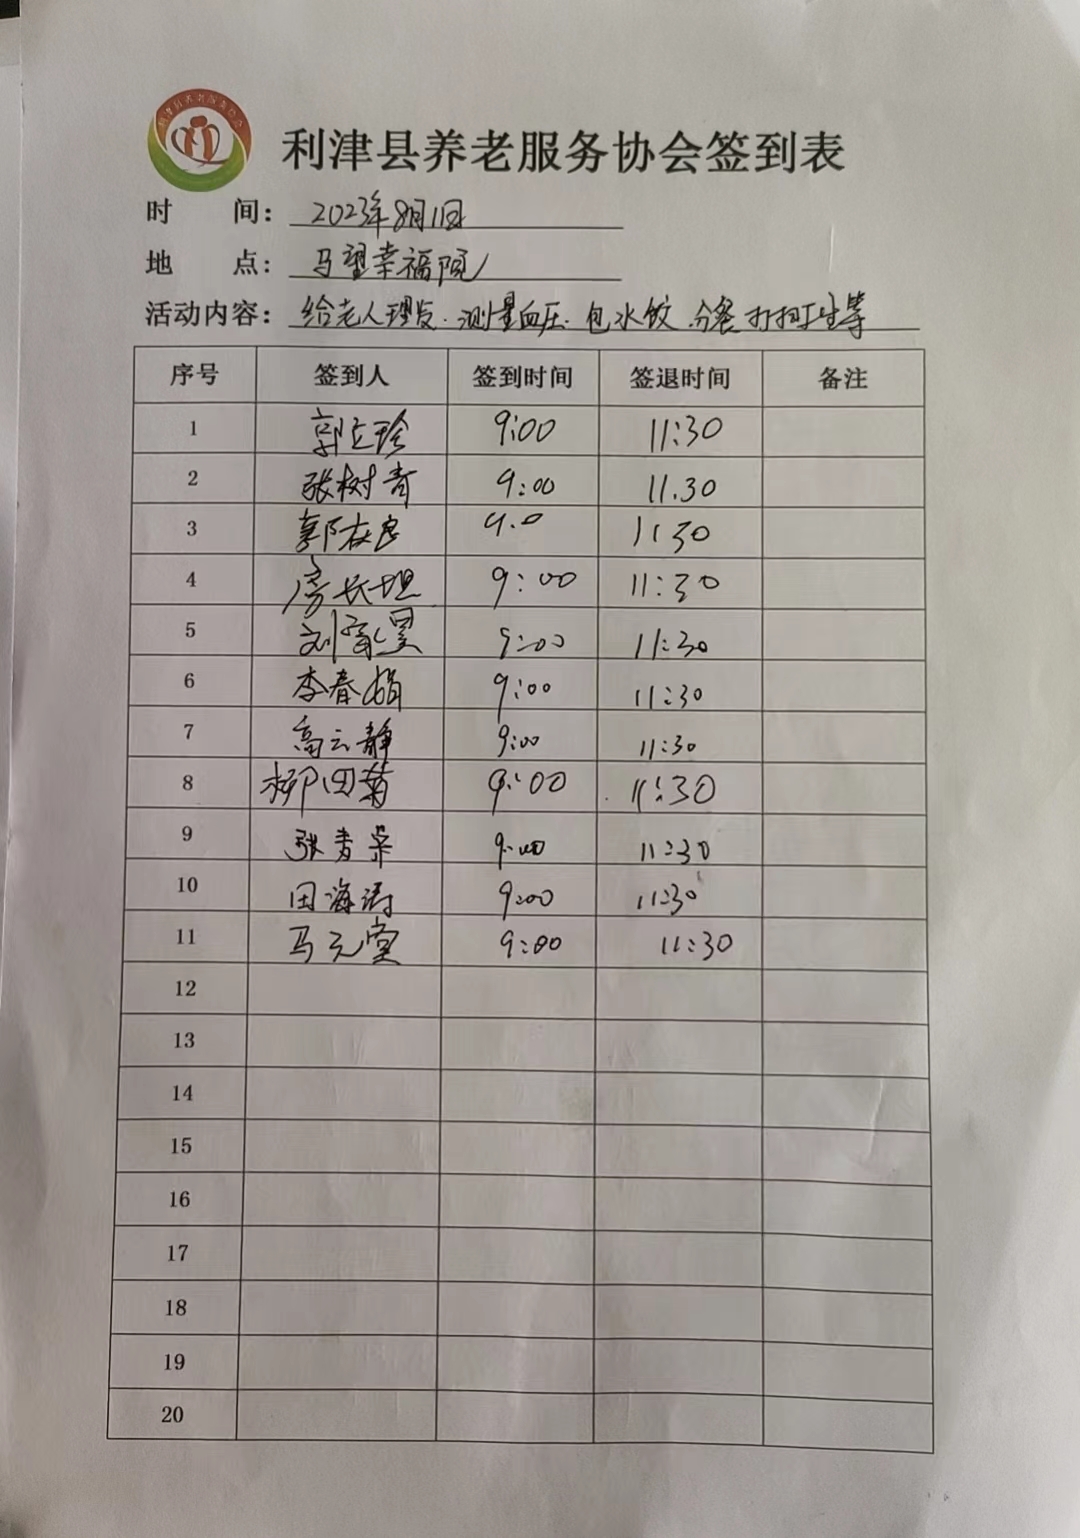 利津县养老服务协会
利津县养老服务协会签到表
时 间: 2023年8月1日
地 点: 马望幸福院
活动内容: 给老人理发. 测量血压. 包水饺. 分餐 打扫卫生等
序号 签到人 签到时间 签退时间 备注
1 郭立珍 9:00 11:30
2 张树青 9:00 11.30
3 郭在良 9.0 11 30
4 房长坦 9:00 11:30
5 刘昊 9:00 11:30
6 李春娟 9:00 11:30
7 高云静 9:00 11:30
8 柳田菊 9:00 11:30
9 张青 9:00 11:30
10 田海涛 9:00 11:30
11 马元堂 9:00 11:30
12
13
14
15
16
17
18
19
20